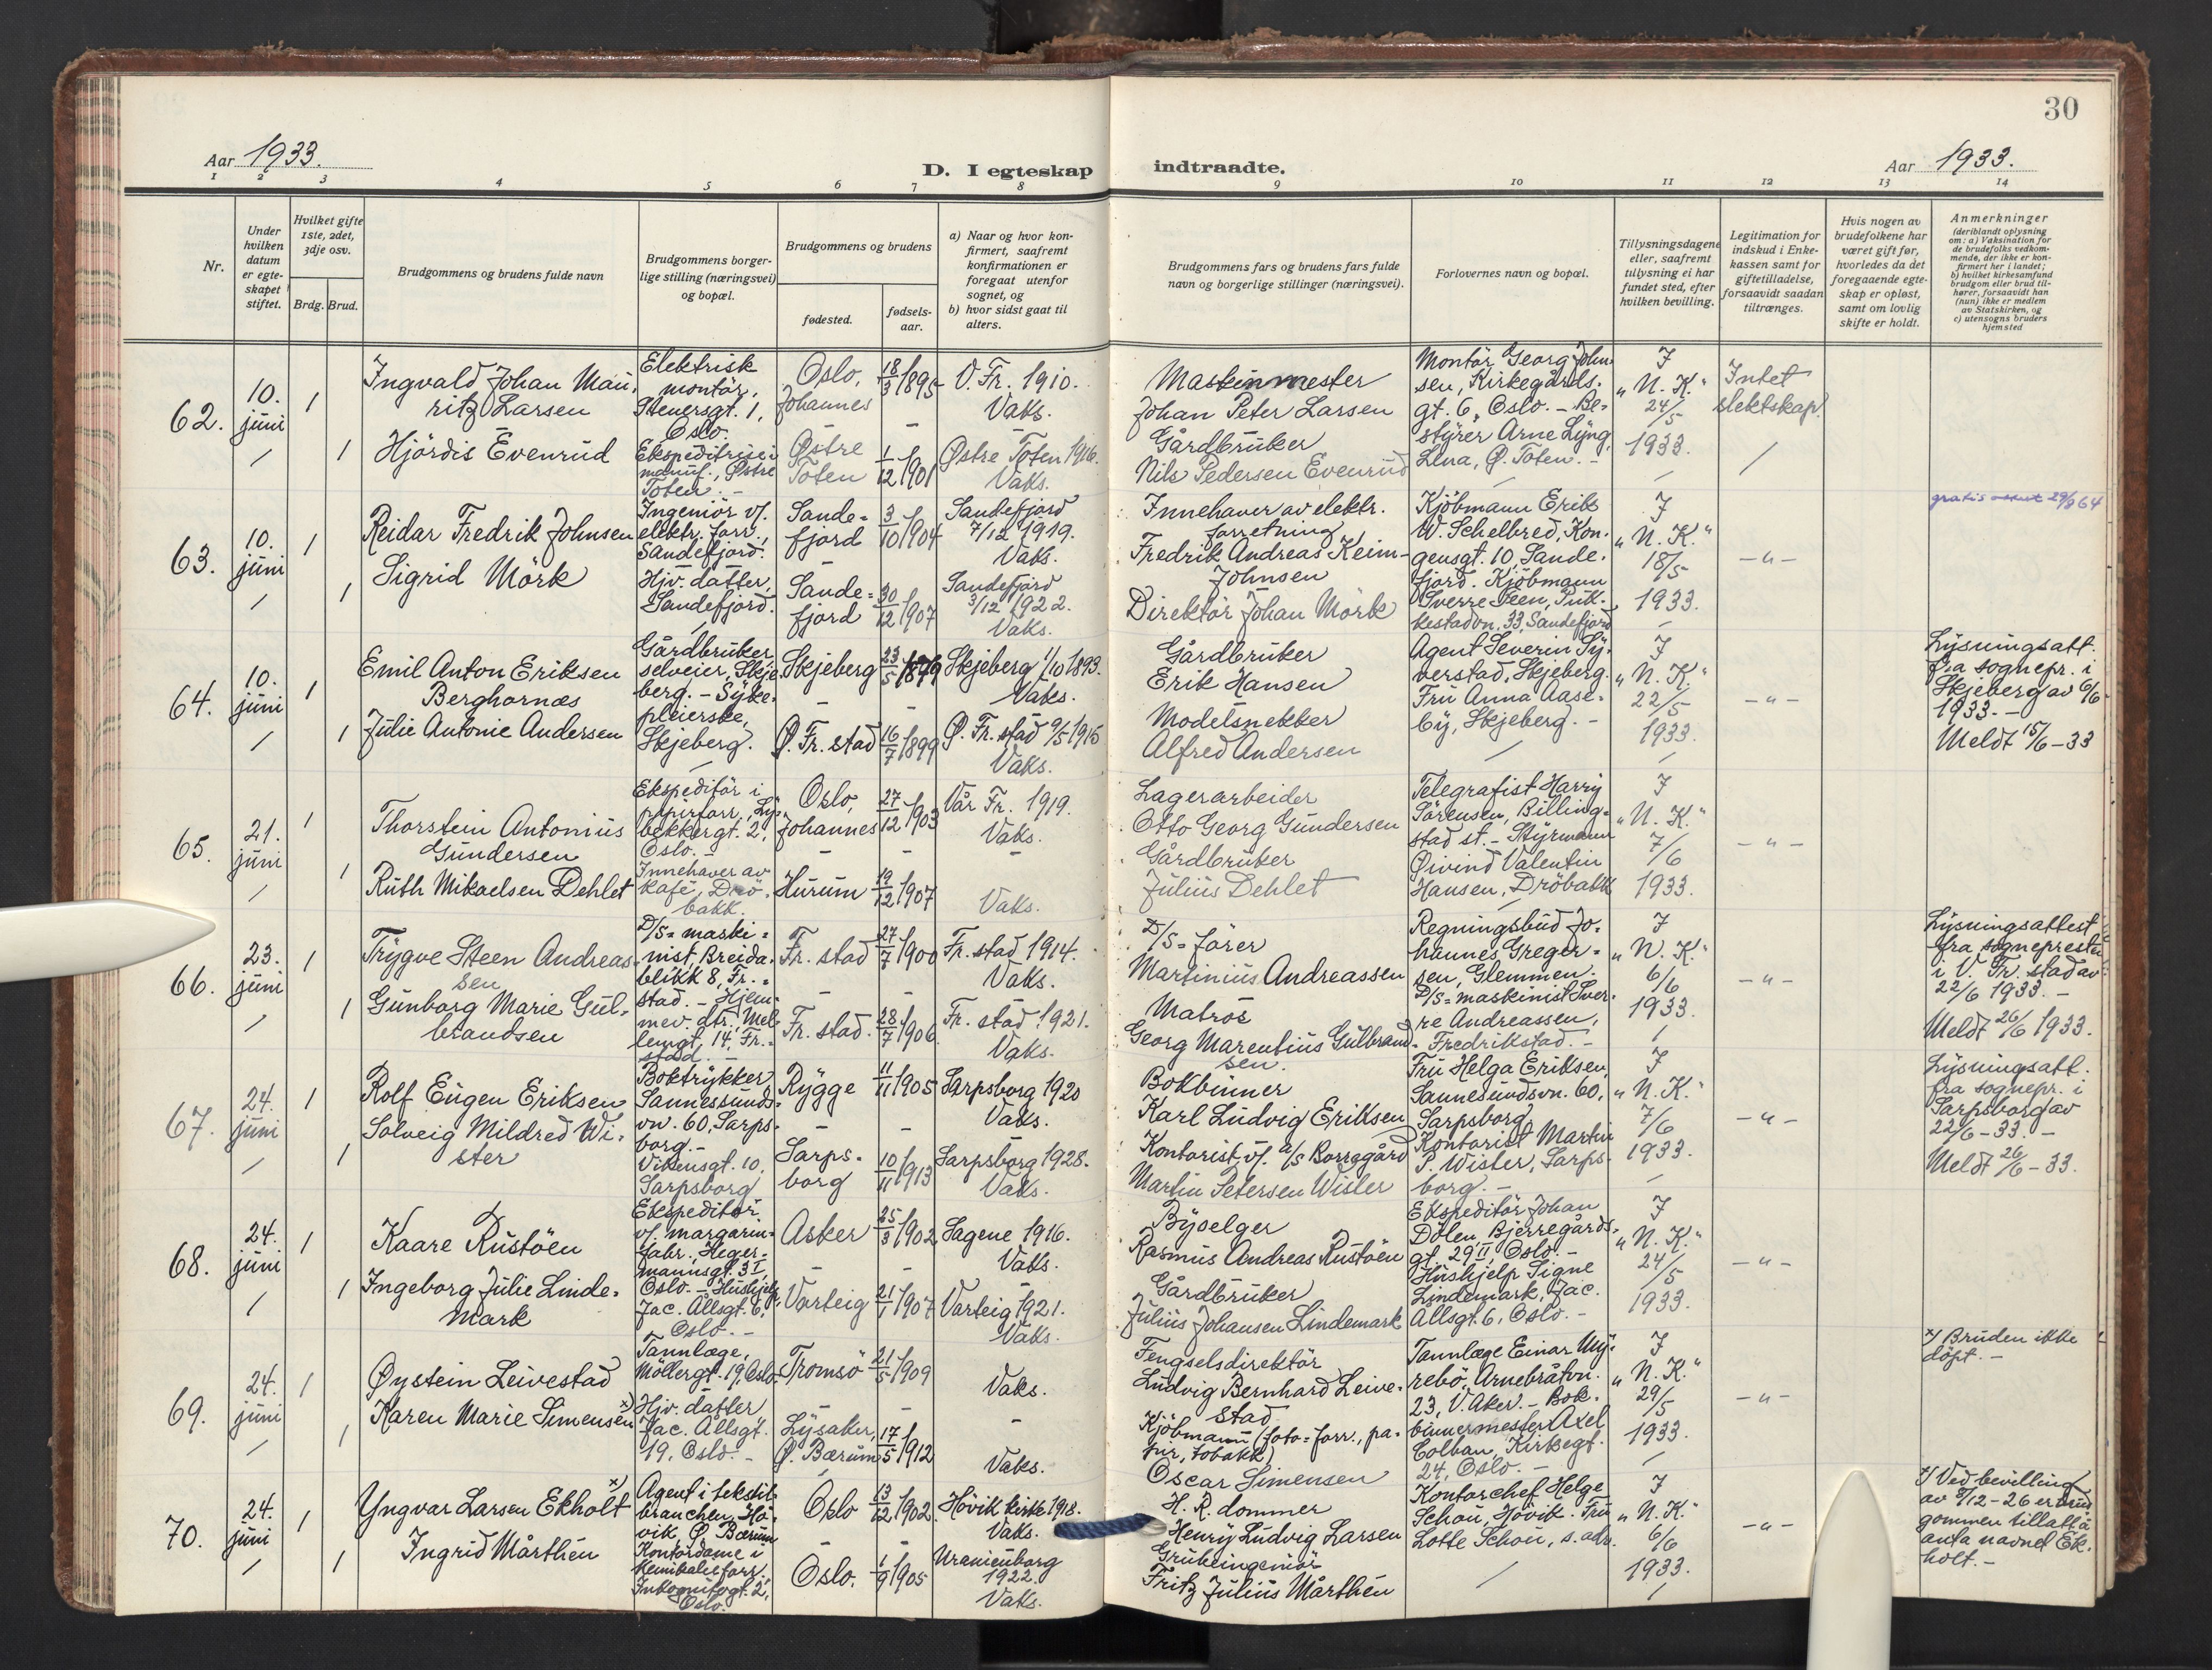 30
Aar 1933.
D. I egteskap indtraadte.
Aar 1933.
1 2 3 4 5 6 7 8 9 10 11 12 13 14
Nr.
Under hvilken datum er egteskapet stiftet.
Hvilket gifte 1ste, 2det, 3dje osv.
Brdg. Brud.
Brudgommens og brudens fulde navn
Brudgommens borgerlige stilling (næringsvei) og bopæl.
Brudgommens og brudens
fødested.
fødselsaar.
a) Naar og hvor konfirmert, saafremt konfirmationen er foregaat utenfor sognet, og
b) hvor sidst gaat til alters.
Brudgommens fars og brudens fars fulde navn og borgerlige stillinger (næringsvei).
Forlovernes navn og bopæl.
Tillysningsdagene eller, saafremt tillysning ei har fundet sted, efter hvilken bevilling.
Legitimation for indskud i Enkekassen samt for giftetilladelse, forsaavidt saadan tiltrænges.
Hvis nogen av brudefolkene har været gift før, hvorledes da det foregaaende egteskap er opløst, samt om lovlig skifte er holdt.
Anmerkninger (deriblandt oplysning om: a) Vaksination for de brudefolks vedkommende, der ikke er konfirmert her i landet; b) hvilket kirkesamfund brudgom eller brud tilhører, forsaavidt han (hun) ikke er medlem av Statskirken, og c) utensogns bruders hjemsted
62. 10. juni 1 Ingvald Johan Mauritz Larsen
Elektrisk montør, Stenersgt. 1, Oslo.
Oslo, Johannes 18/3 1895 V. Fr. 1910. Vaks.
Maskinmester Johan Peter Larsen
Montør Georg Johnsen, Kirkegårdsgt. 6, Oslo. - Bestyrer Arne Lyng, Lena, Ø. Toten. -
I "N. K." 24/5 1933.
Intet slektskap.
1 Hjördis Evenrud
Ekspeditrise i manuf., Østre Toten. -
Østre Toten 1/12 1901 Østre Toten 1916. Vaks.
Gårdbruker Nils Pedersen Evenrud
63. 10. juni 1 Reidar Fredrik Johnsen
Ingeniör v/ elektr. forr., Sandefjord.
Sandefjord 3/10 1904 Sandefjord 7/12 1919. Vaks.
Innehaver av elektr. forretning Fredrik Andreas Keim-Johnsen
Kjöbmann Erik W. Schelbred, Kongensgt. 10, Sandefjord. Kjöbmann Sverre Feen, Pukkestadvn. 33, Sandefjord
I "N. K." 18/5 1933.
- " -
29/8 64
1 Sigrid Mörk
Hjv. datter, Sandefjord.
Sandefjord 30/12 1907 Sandefjord 3/12 1922. Vaks.
Direktör Johan Mörk
64. 10. juni 1 Emil Anton Eriksen Berghornæs
Gårdbruker, selveier, Skjeberg. - Sykepleierske, Skjeberg.
Skjeberg 23/5 1879 Skjeberg 1/10 1893. Vaks.
Gårdbruker Erik Hansen
Agent Severin Syverstad, Skjeberg. Fru Anna Aaseby, Skjeberg. -
I "N. K." 22/5 1933.
- " -
Lysningsatt. fra sognepr. i Skjeberg av 6/6 1933. -
Meldt 15/6 - 33
1 Julie Antonie Andersen
Ø. Fr. stad 16/7 1899 Ø. Fr. stad 9/5 1915 Vaks.
Modelsnekker Alfred Andersen
65. 21. juni 1 Thorstein Antonius Gundersen
Ekspeditör i papirforr., Lybekkergt. 2, Oslo. -
Oslo, Johannes 27/12 1903 Vår Fr. 1919. Vaks.
Lagerarbeider Otto Georg Gundersen
Telegrafist Harry Sörensen, Billingstad st. - Styrmann Øivind Valentin Hansen, Dröbakk
I "N. K." 7/6 1933.
- " -
1 Ruth Mikaelsen Dehlet
Innehaver av kafé, Dröbakk.
Hurum 19/12 1907 Vaks.
Gårdbruker Julius Dehlet
66. 23. juni 1 Trygve Steen Andreassen
D/S = maskinist, Breidablikk 8, Fr.stad. - Hjemmev. dtr., Mellemgt. 14, Fr.stad. -
Fr. stad 27/7 1900 Fr. stad 1914. Vaks.
D/S = förer Martinius Andreassen
Regningsbud Johannes Gregersen, Glemmen. D/S = maskinist Sverre Andreassen, Fredrikstad. -
I "N. K." 6/6 1933.
- " -
Lysningsattest fra sognepresten i V. Fr. stad av 22/6 1933. -
Meldt 26/6 1933.
1 Gunborg Marie Gulbrandsen
Fr. stad. 28/7 1906. Fr. stad 1921. Vaks.
Matros Georg Marentius Gulbrandsen.
67. 24. juni 1 Rolf Eugen Eriksen
Boktrykker, Sannessundsvn. 60, Sarpsborg. -
Rygge 11/11 1905 Sarpsborg 1920 Vaks.
Bokbinner Karl Ludvig Eriksen
Fru Helga Eriksen, Sannesundsvn. 60, Sarpsborg, Kontorist Martin P. Wister, Sarpsborg. -
I "N. K." 7/6 1933.
- " -
Lysningsatt. fra sognepr. i Sarpsborg av 22/6 - 33. -
Meldt 26/6 - 33.
1 Solveig Mildred Wister
Vikensgt. 10, Sarpsborg
Sarpsborg 10/11 1913 Sarpsborg 1928. Vaks.
Kontorist v/ A/S Borregård Martin Petersen Wister
68. 24. juni 1 Kaare Rustöen
Ekspeditör v/ margarinfabr., Hegermannsgt. 3 I, Oslo. - Hushjelp, Jac. Allsgt. 6, Oslo. -
Asker 25/3 1902 Sagene 1916. Vaks.
Byselger Rasmus Andreas Rustöen
Ekspeditör Johan Dölen, Bjerregårdsgt. 29 II, Oslo. - Hushjelp Signe Lindemark, Jac. Allsgt. 6, Oslo. -
I "N. K." 24/5 1933.
- " -
1 Ingeborg Julie Lindemark
Varteig 21/1 1907 Varteig 1921. Vaks.
Gårdbruker Julius Johansen Lindemark
69. 24. juni 1 Øystein Leivestad
Tannlæge, Möllergt. 19, Oslo.
Tromsö 21/5 1909 Vaks.
Fengselsdirektör Ludvig Bernhard Leivestad
Tannlæge Einar Myrebö, Arnebråtvn. 23, V. Aker. - Bokbinnermester Axel Colban, Kirkegt. 24, Oslo. -
I "N. K." 29/5 1933.
- " -
x) Bruden ikke döpt. -
1 Karen Marie Simensen x)
Hjv. datter Jac. Allsgt. 19, Oslo. -
Lysaker, Ø. Bærum 17/5 1912 Vaks.
Kjöbmann (foto = forr., papir, tobakk) Oscar Simensen
70. 24. juni 1 Yngvar Larsen Ekholt x)
Agent i tekstilbranchen, Hövik, Ø. Bærum
Oslo 13/12 1902. Hövik kirke 1918. Vaks.
H. R. dommer Henry Ludvig Larsen
Kontorchef Helge Schou, Hövik. Fru Lotte Schou, s. adr.
I "N. K." 6/6 1933.
- " -
x) Ved bevilling av 9/12 - 26 er brudgommen tillatt å anta navnet Ekholt. -
1 Ingrid Mårthén
Kontordame i kemikalieforr. Inkognitogt. 2, Oslo.
Oslo. 1/9 1905 Uranienborg 1922. Vaks.
Grubeingeniör Fritz Julius Mårthén